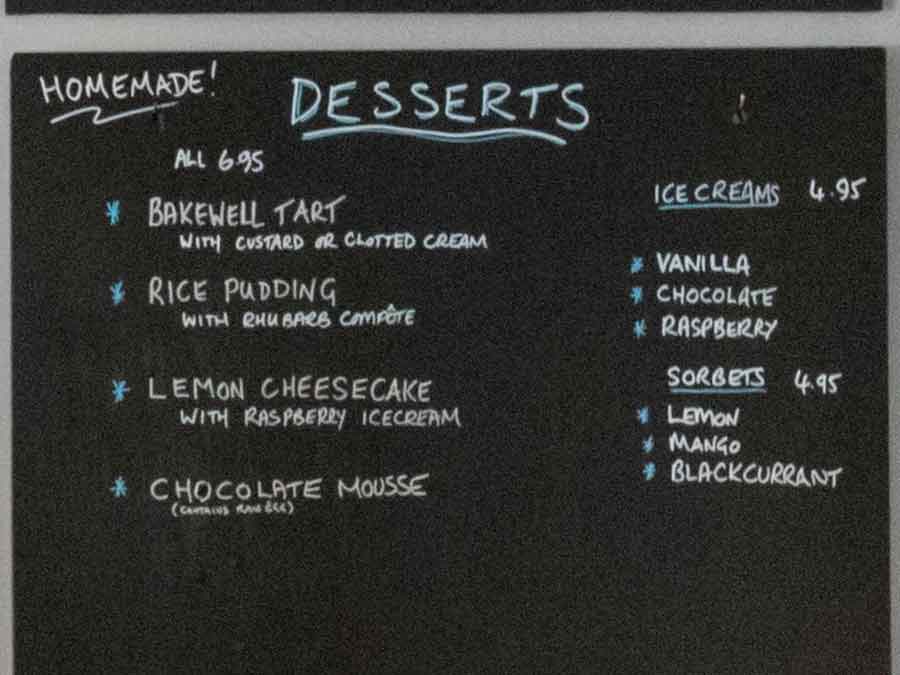 HOMEMADE!
DESSERTS
ALL 6.95
* BAKEWELL TART
WITH CUSTARD OR CLOTTED CREAM
* RICE PUDDING
WITH RHUBARB COMPÔTE
* LEMON CHEESECAKE
WITH RASPBERRY ICECREAM
* CHOCOLATE MOUSSE
(CONTAINS RAW EGG)
ICE CREAMS 4.95
* VANILLA
* CHOCOLATE
* RASPBERRY
SORBETS 4.95
* LEMON
* MANGO
* BLACKCURRANT